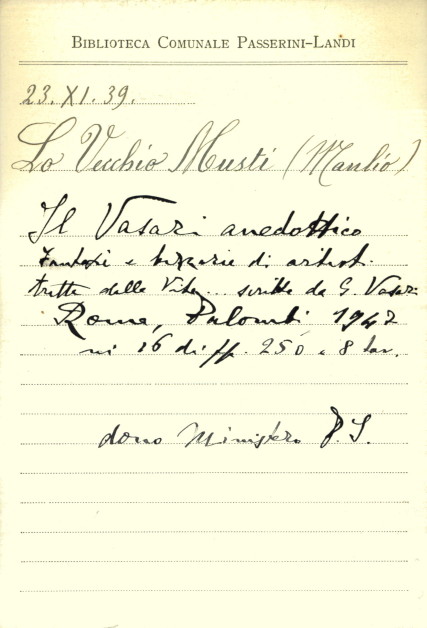 BIBLIOTECA COMUNALE PASSERINI-LANDI
23. XI. 39.
Lo Vecchio Musti (Manlio)
Il Vasari anedottico
Fantasie e bizzarie di artisti
tratte dalle Vite... scritte da G. Vasari
Roma, Palombi 1947
in 16 di pp. 250 e 8 tav.
dono Ministero P. I.